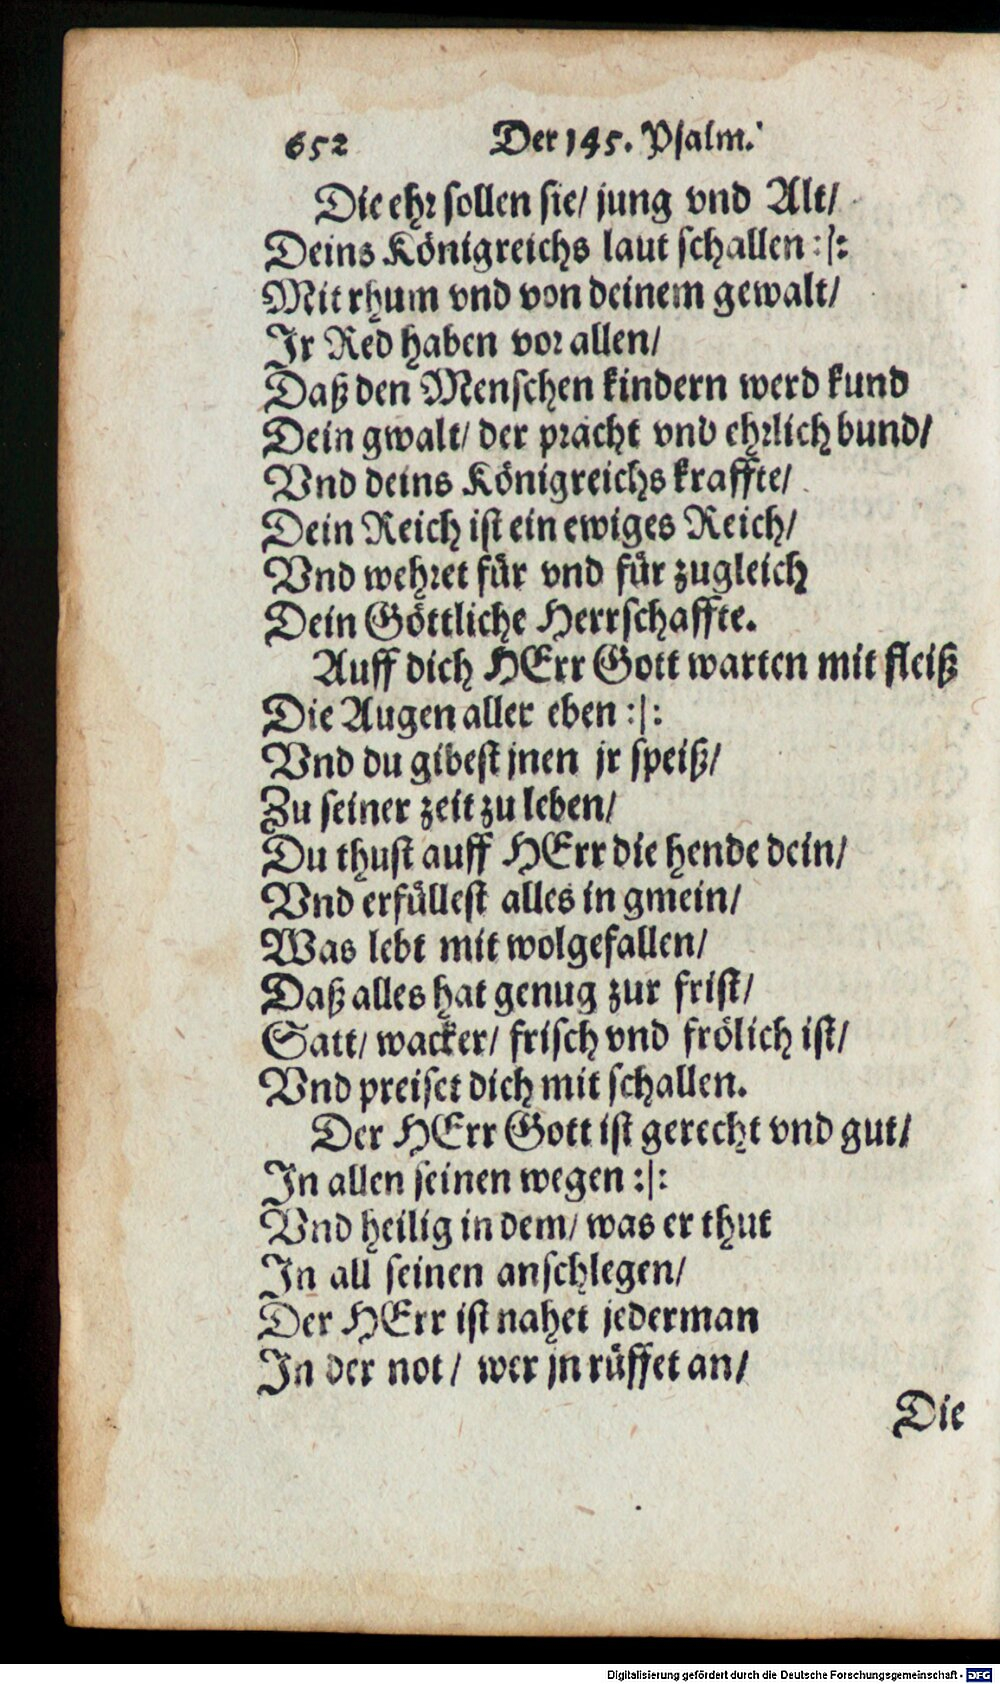 652 Der 145. Psalm.
Die ehr sollen sie/ jung vnd Alt/
Deins Königreichs laut schallen :|:
Mit rhum vnd von deinem gewalt/
Jr Red haben vor allen/
Daß den Menschen kindern werd kund
Dein gwalt/ der pracht vnd ehrlich bund/
Vnd deins Königreichs kraffte/
Dein Reich ist ein ewiges Reich/
Vnd wehret für vnd für zugleich
Dein Göttliche Herrschaffte.
Auff dich HErr Gott warten mit fleiß
Die Augen aller eben :|:
Vnd du gibest jnen jr speiß/
Zu seiner zeit zu leben/
Du thust auff HErr die hende dein/
Vnd erfüllest alles in gmein/
Was lebt mit wolgefallen/
Daß alles hat genug zur frist/
Satt/ wacker/ frisch vnd frölich ist/
Vnd preiset dich mit schallen.
Der HErr Gott ist gerecht vnd gut/
Jn allen seinen wegen :|:
Vnd heilig in dem/ was er thut
Jn all seinen anschlegen/
Der HErr ist nahet jederman
Jn der not/ wer jn rüffet an/
Die
Digitalisierung gefördert durch die Deutsche Forschungsgemeinschaft - DFG